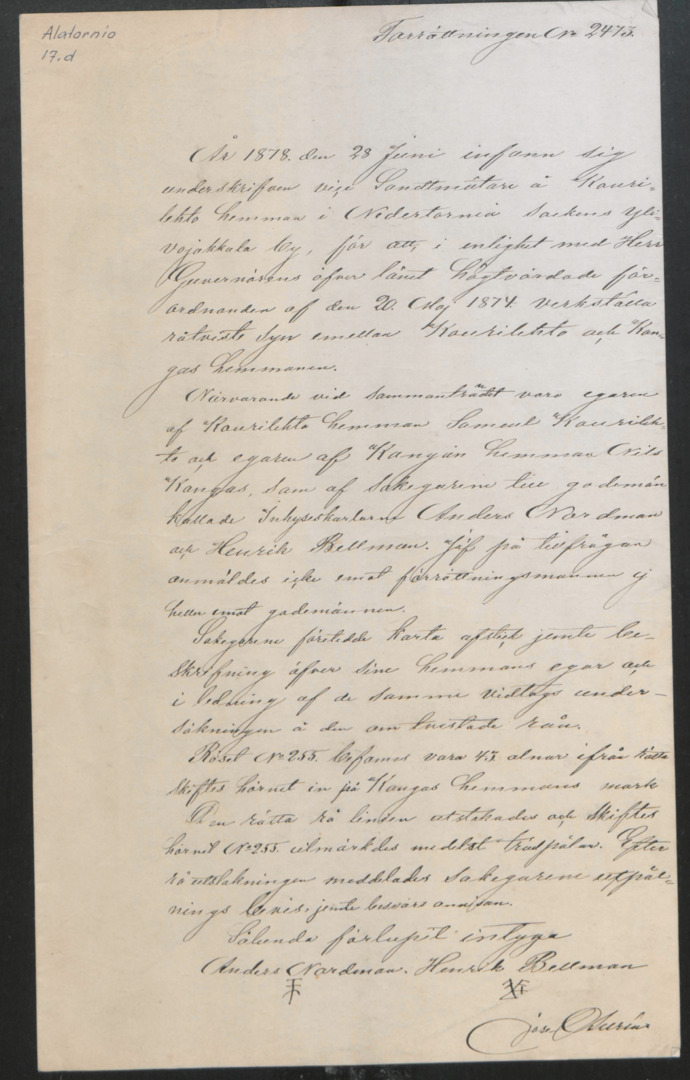 Alatornio
17.d
Förrättningen No 2473.
År 1878. den 28 Juni infann sig
underskrifven vice Landtmätare å Kauri-
lehto hemman i Nedertorneå sockens Yli-
vojakkala by, för att, i enlighet med Herr
Guvernörens öfver länet högtvördade för-
ordnanden af den 20. Maj 1874. verkställa
råtviste syn emellan Kaurilehto och Kan-
gas hemmanen.
Närvarande vid sammanträdet voro egaren
af Kaurilehto hemman Samuel Kaurileh-
to och egaren af Kangas hemman Nils
Kangas, som af sakegarene till godemän
kallade Inhyseskarlarne Anders Nordman
och Henrik Bellman. Jäf på tillfrågan
anmäldes icke emot förrättningsmannen ej
heller emot godemännen.
Sakegarene företedde karta afslutet jemte be-
skrifning öfver sine hemmans egor och
i ledning af de samma vidtogs under-
sökningen å den omtvistade rån.
Röset No 255. befanns vara 43 alnar ifrån rätta
skiftes hörnet in på Kangas hemmans mark
Den rätta rå linien utstakades och skiftes
hörnet No 255. utmärktes medelst trädpålar. Efter
rå utstakningen meddelades sakegarene utpål-
nings bevis, jemte besvärs anvisan.
Sålunda förlupit intyga
Anders Nordman. Henrik Bellman